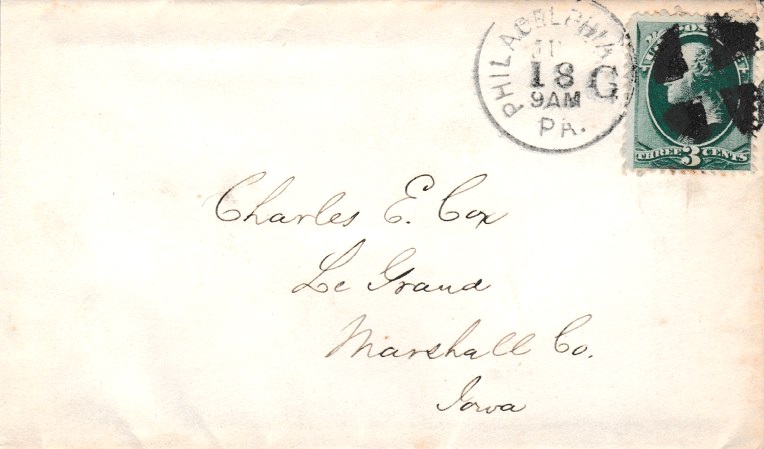 PHILADELPHIA
18 G
9AM
PA.
THREE 3 CENTS
Charles E. Cox
Le Grand
Marshall Co.
Iowa